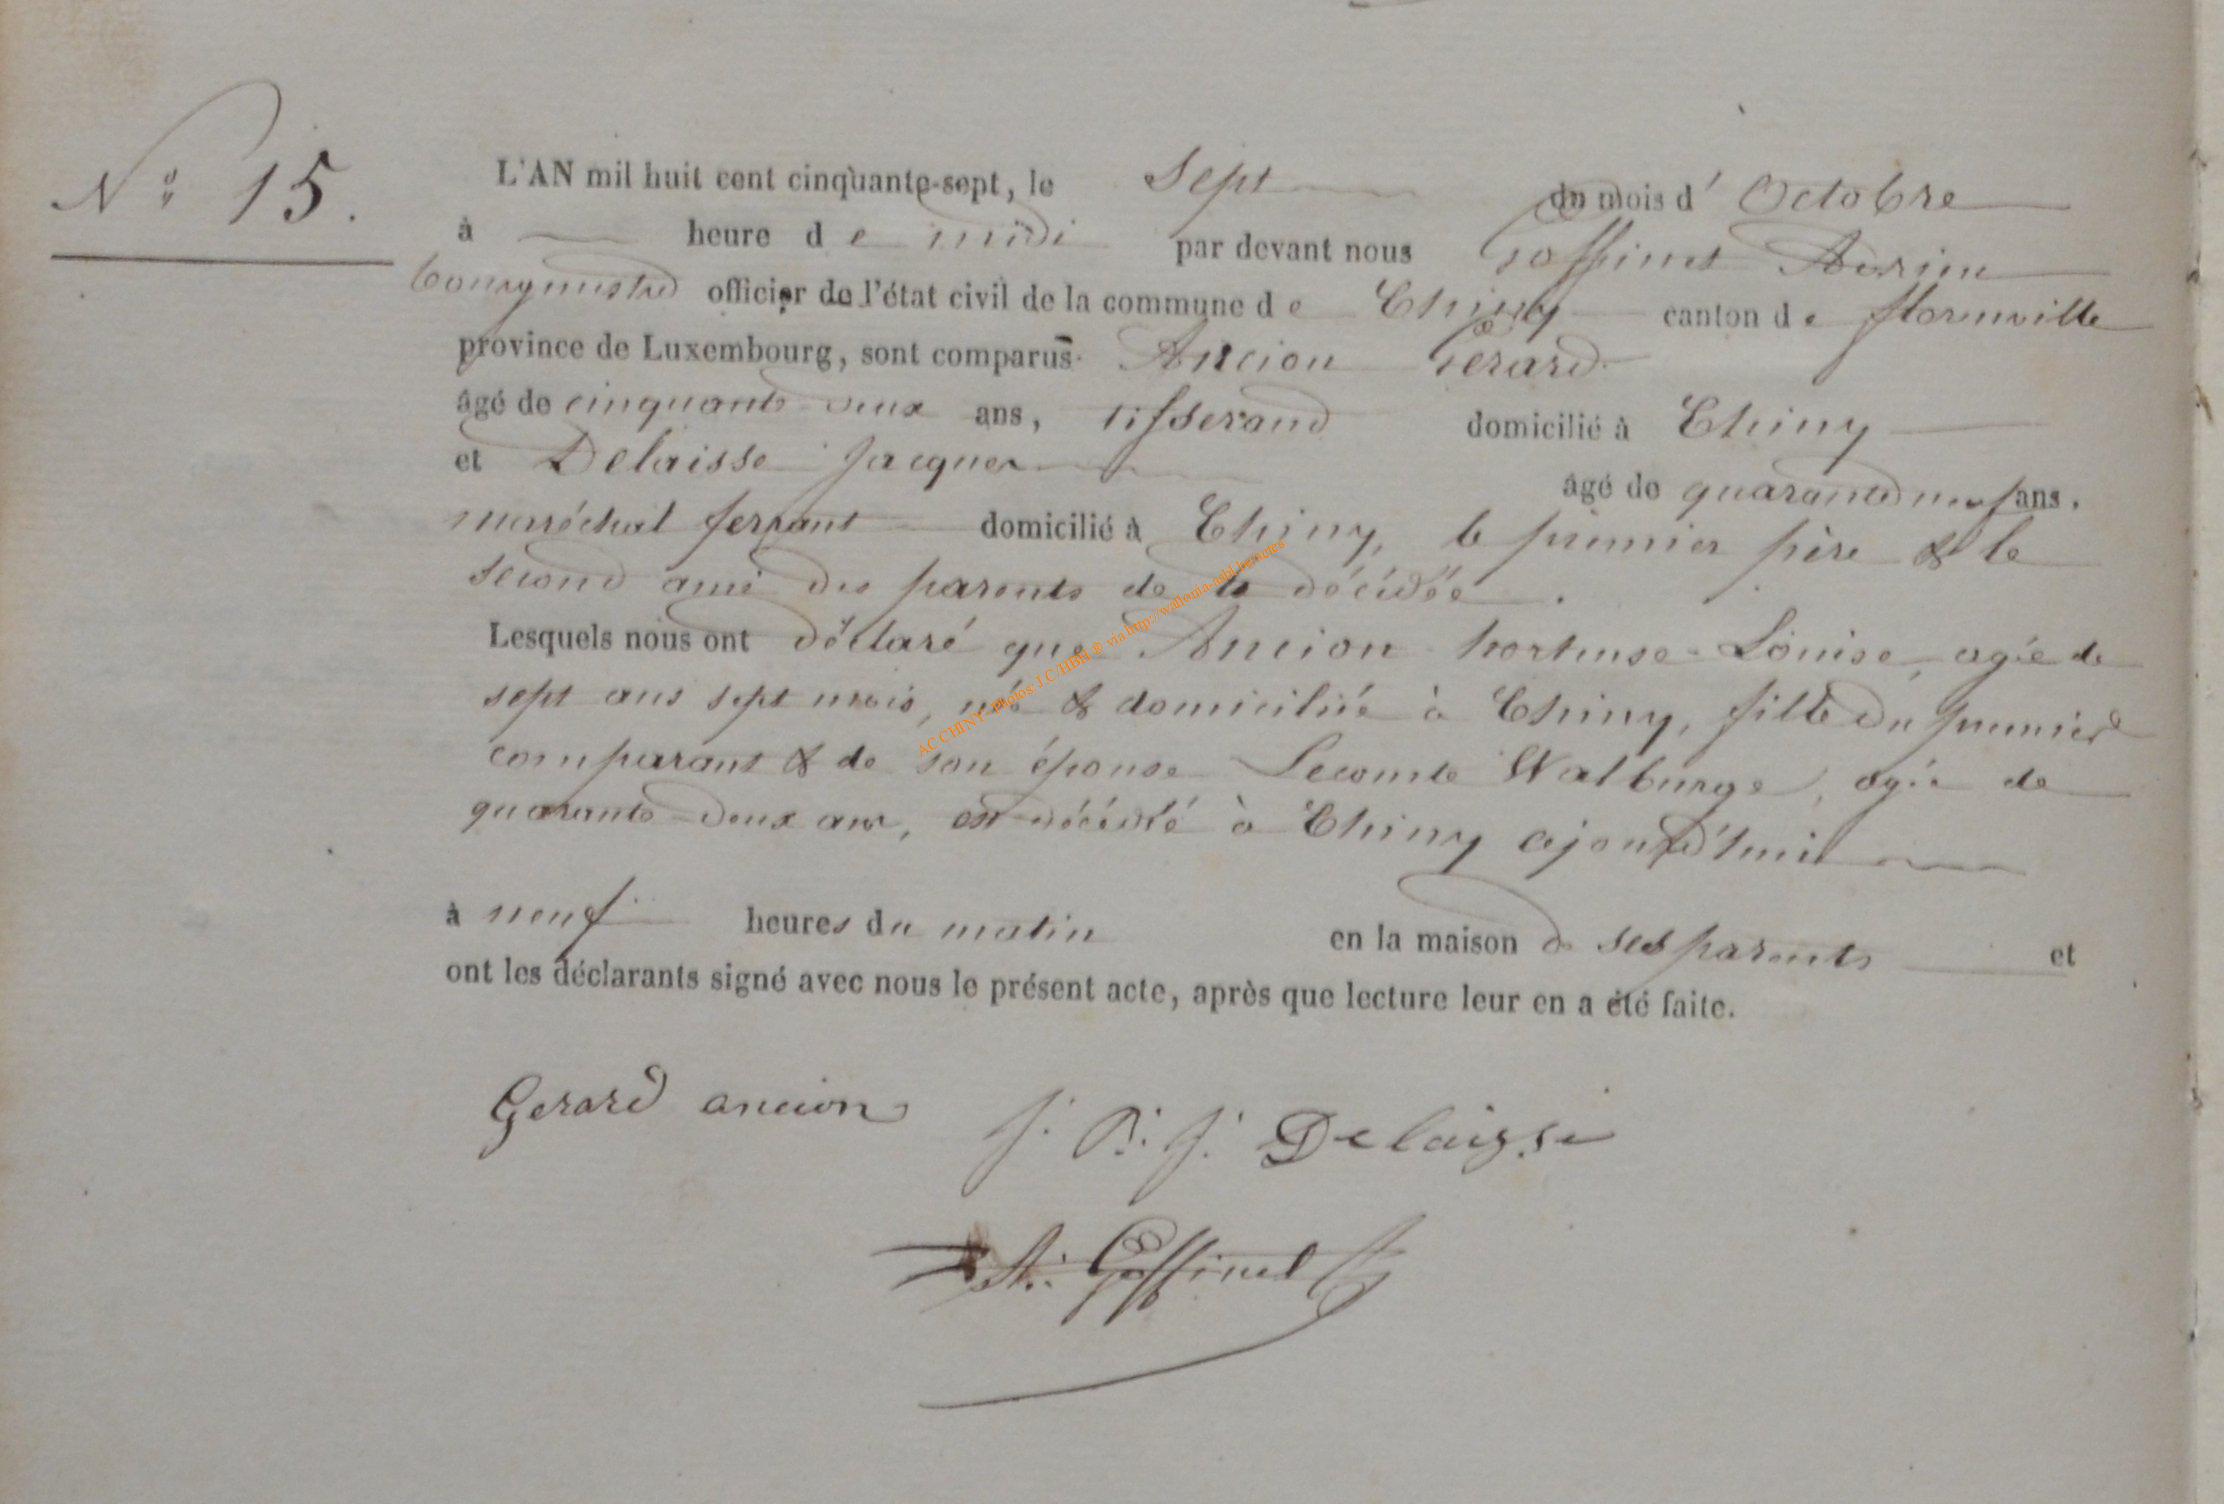 N° 15.
L'AN mil huit cent cinquante-sept, le Sept du mois d' Octobre
à heure de midi par devant nous Goffinet Adrien
bourgmestre officier de l'état civil de la commune de Chiny canton de florenville
province de Luxembourg, sont comparus Ancion Gérard
âgé de cinquante deux ans, tisserand domicilié à Chiny
et Delaisse Jacques âgé de quarante neuf ans,
maréchal ferrant domicilié à Chiny, le premier père & le
second ami des parents de la décédée.
Lesquels nous ont déclaré que Ancion hortense Louise, agée de
sept ans sept mois, née & domiciliée à Chiny, fille du premier
comparant & de son épouse Lecomte Walburge, agée de
quarante deux ans, est décédé à Chiny ajourd'hui
à neuf heures du matin en la maison de ses parents et
ont les déclarants signé avec nous le présent acte, après que lecture leur en a été faite.
Gerard ancion
J. P. J. Delaisse
A. Goffinet
AC CHINY - Photos J.C. HBH © via http://wallonia-asbl.be/actes